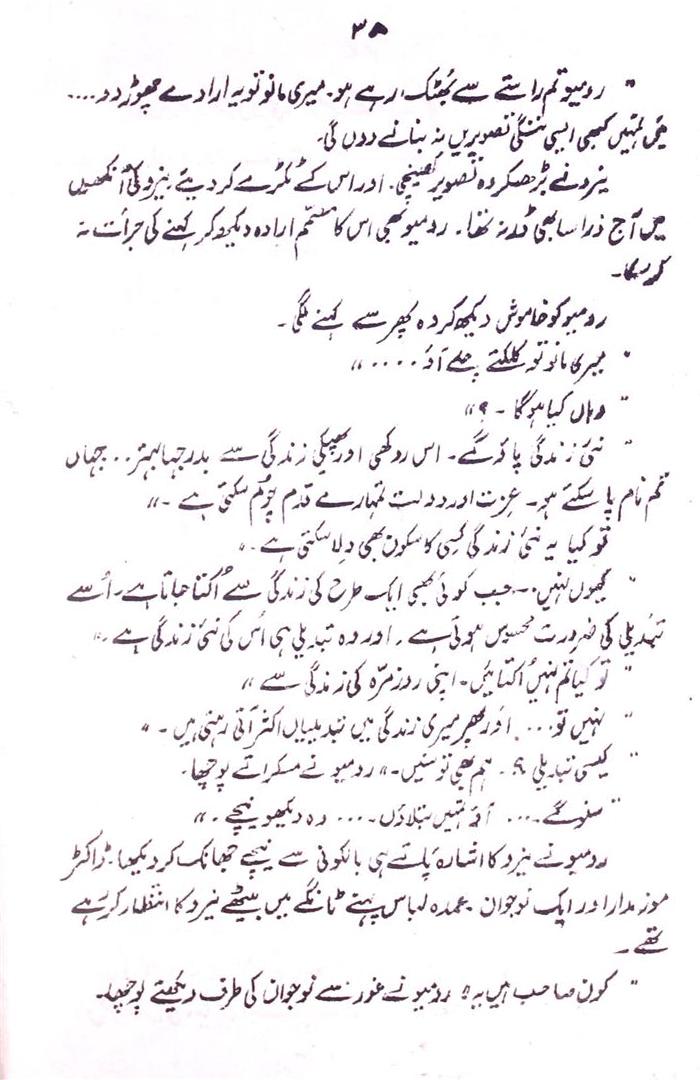 ۳۸
" رومیو تم راستے سے بھٹک رہے ہو۔ میری مانو تو یہ ارادے چھوڑ دو ....
میں تمہیں کبھی ایسی ننگی تصویریں نہ بنانے دوں گی۔
نیرو نے بڑھ کر وہ تصویر کھینچی۔ اور اس کے ٹکڑے کر دیئے۔ نیرو کی آنکھیں
میں آج ذرا سا بھی ڈر نہ تھا۔ رومیو بھی اس کا مصمم ارادہ دیکھ کر کہنے کی جرأت نہ
کر سکا۔
رومیو کو خاموش دیکھ کر وہ پھر سے کہنے لگی۔
" میری مانو تو کلکتے چلے آؤ ..... "
" وہاں کیا ہوگا ۔ ؟ "
" نئی زندگی پاؤ گے۔ اس روکھی اور پھیکی زندگی سے بدرجہا بہتر .. جہاں
تم نام پا سکتے ہو۔ عزت اور دولت تمہارے قدم چوم سکتی ہے ۔ "
تو کیا یہ نئی زندگی کسی کا سکون بھی دلا سکتی ہے ۔ "
" کیوں نہیں ۔ جب کوئی بھی ایک طرح کی زندگی سے اُکتا جاتا ہے ۔ اُسے
تبدیلی کی ضرورت محسوس ہوتی ہے ۔ اور وہ تبدیلی ہی اُس کی نئی زندگی ہے ۔ "
" تو کیا تم نہیں اُکتائیں ۔ اپنی روزمرّہ کی زندگی سے "
" نہیں تو .... اور پھر میری زندگی میں تبدیلیاں اکثر آتی رہتی ہیں ۔ "
" کیسی تبدیلی ؟ ۔ ہم بھی تو سنیں ۔ " رومیو نے مسکراتے پوچھا۔
" سنو گے .... آؤ تمہیں بتلاؤں .... وہ دیکھو نیچے ۔ "
رومیو نے نیرو کا اشارہ پاتے ہی بالکونی سے نیچے جھانک کر دیکھا۔ ڈاکٹر
موزمدار اور ایک نوجوان عمدہ لباس پہنے ٹانگے میں بیٹھے نیرو کا انتظار کر رہے
تھے ۔
" کون صاحب ہیں یہ " رومیو نے غور سے نوجوان کی طرف دیکھتے پوچھا۔